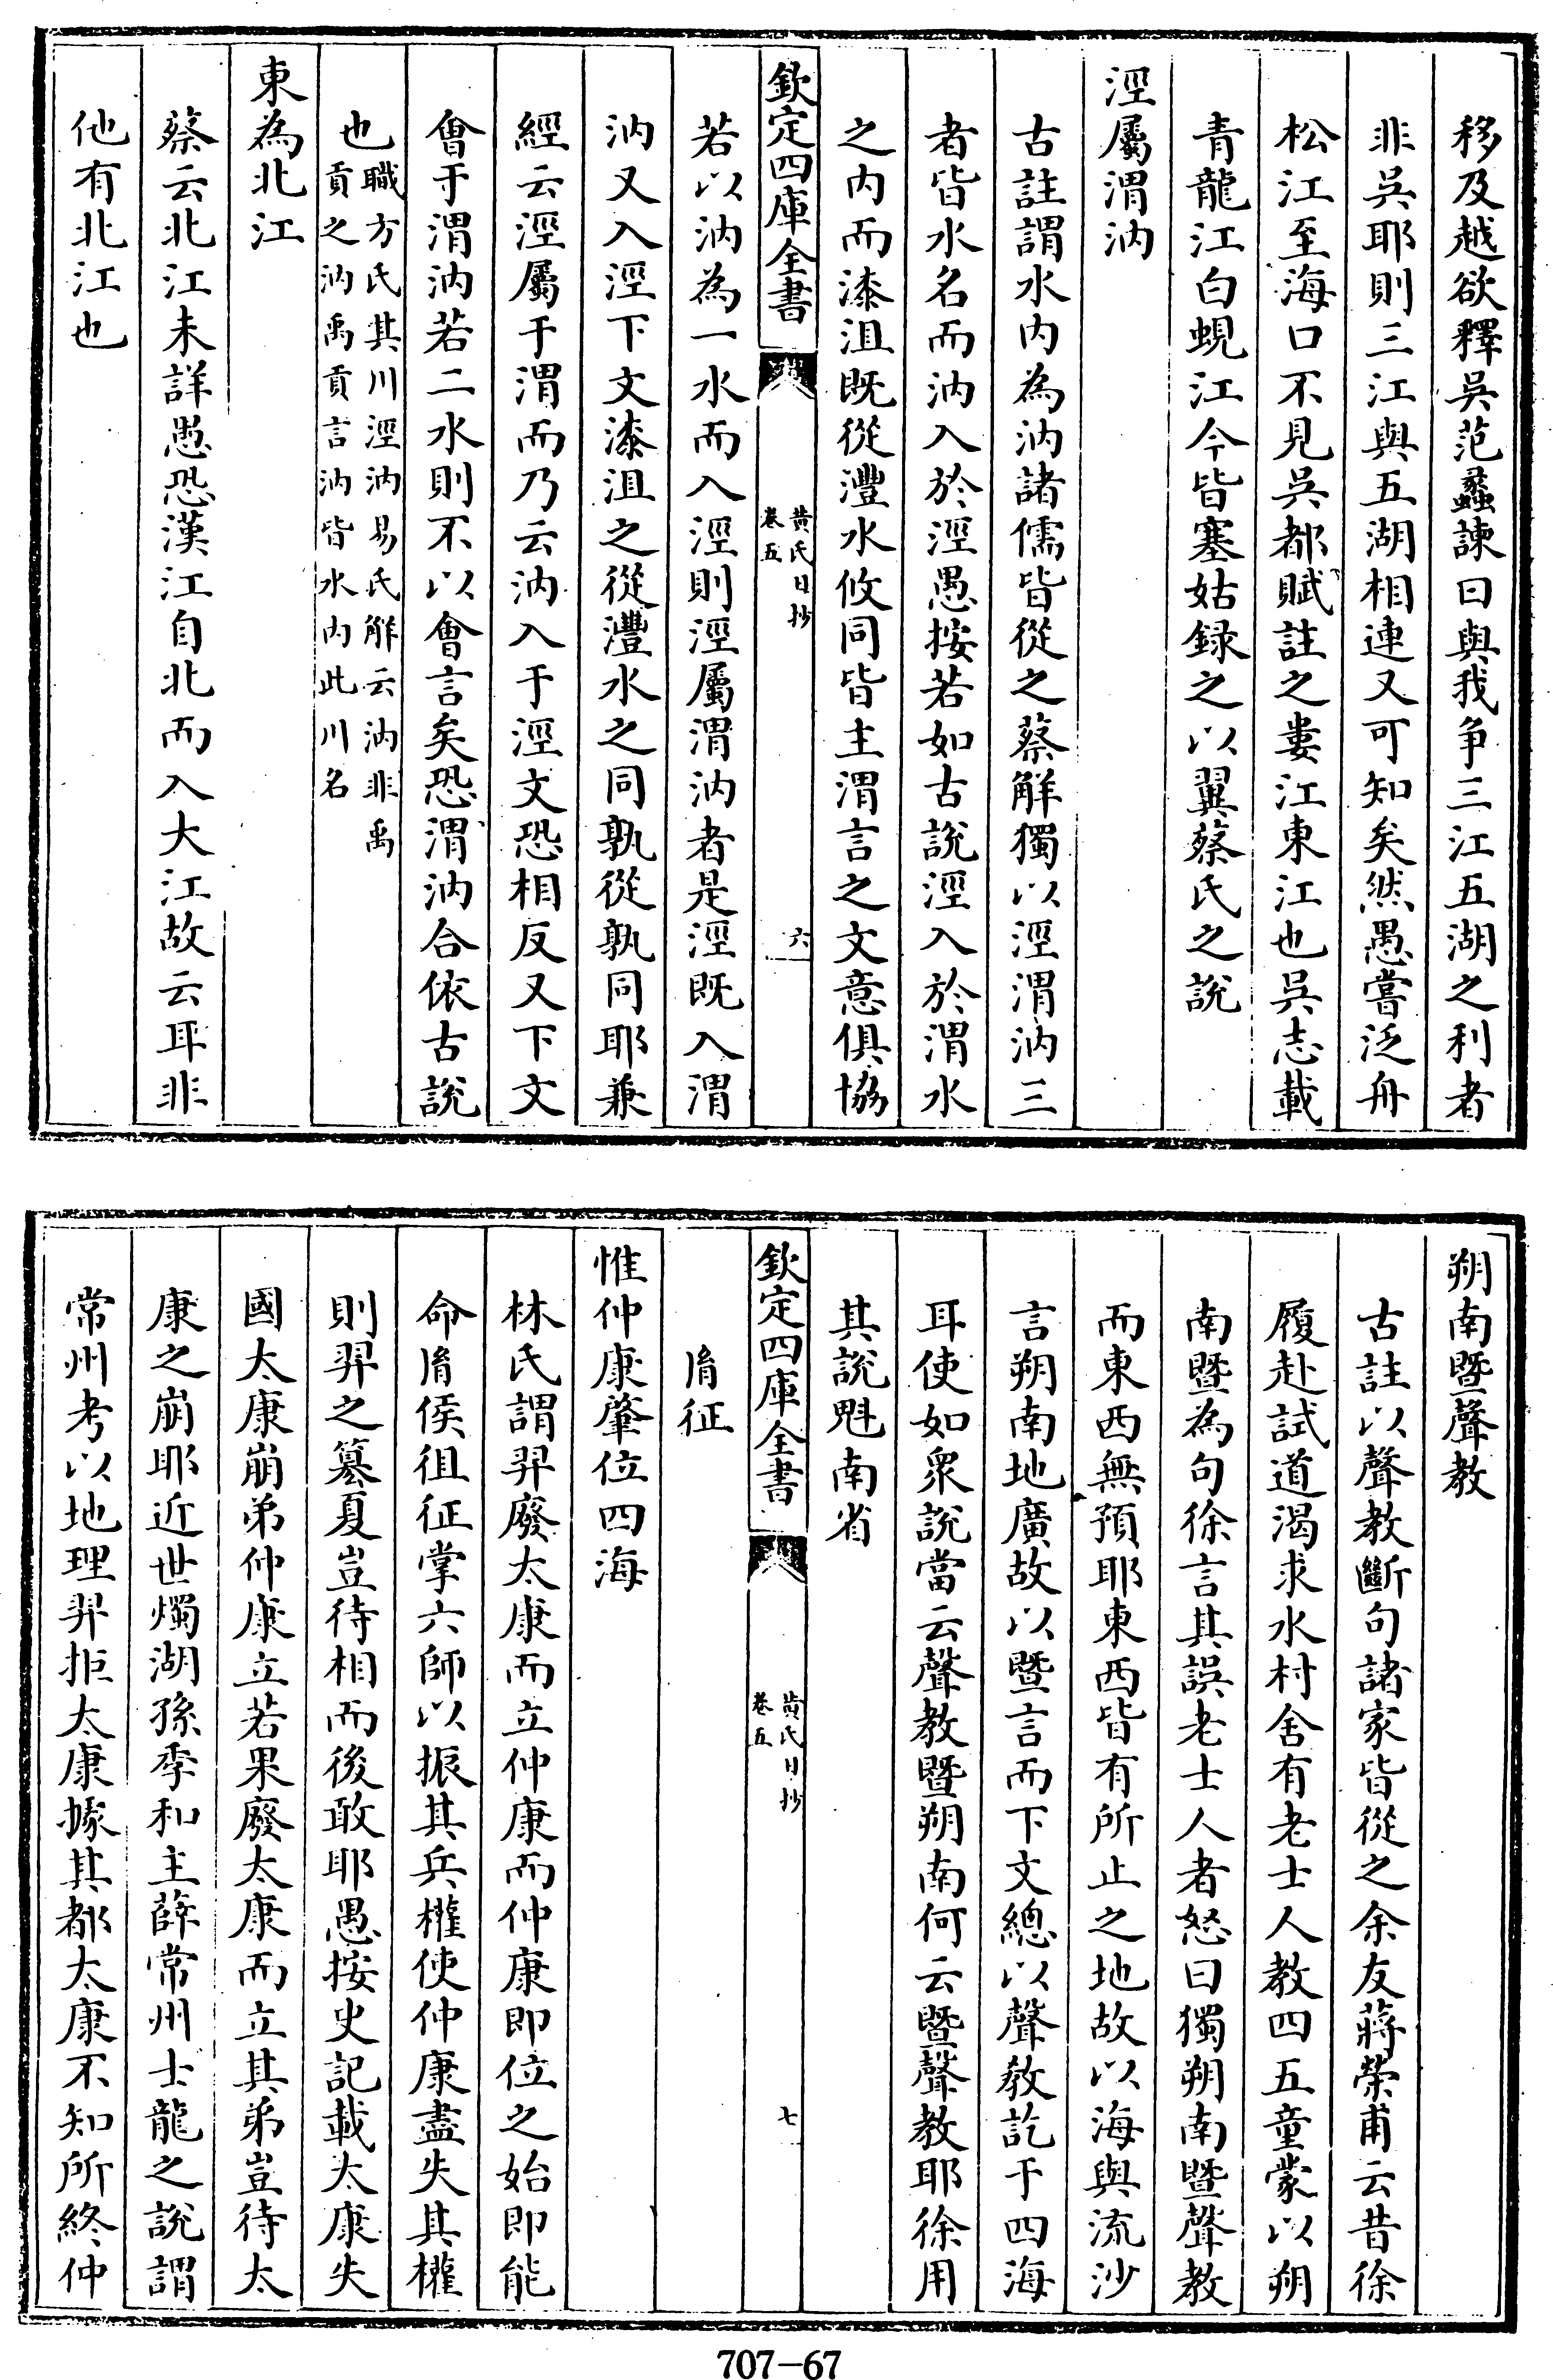 移及越欲釋吳范蠡諫曰與我争三江五湖之利者
非吳耶則三江與五湖相連又可知矣然愚嘗泛舟
松江至海口不見吳都賦註之婁江東江也吳志載
青龍江白蜆江今皆塞姑録之以翼蔡氏之說
涇屬渭汭
古註謂水内為汭諸儒皆從之蔡解獨以涇渭汭三
者皆水名而汭入於涇愚按若如古說涇入於渭水
之内而漆沮既從灃水攸同皆主渭言之文意俱協
欽定四庫全書
黄氏日抄
卷五
六
若以汭為一水而入涇則涇屬渭汭者是涇既入渭
汭又入涇下文漆沮之從灃水之同孰從孰同耶兼
經云涇屬于渭而乃云汭入于涇文恐相反又下文
會于渭汭若二水則不以會言矣恐渭汭合依古說
也職方氏其川涇汭易氏解云汭非禹
貢之汭禹貢言汭皆水内此川名
東為北江
蔡云北江未詳愚恐漢江自北而入大江故云耳非
他有北江也
朔南暨聲教
古註以聲教斷句諸家皆從之余友蔣榮甫云昔徐
履赴試道渴求水村舍有老士人教四五童蒙以朔
南暨為句徐言其誤老士人者怒曰獨朔南暨聲教
而東西無預耶東西皆有所止之地故以海與流沙
言朔南地廣故以暨言而下文總以聲教訖于四海
耳使如衆說當云聲教暨朔南何云暨聲教耶徐用
其說魁南省
欽定四庫全書
黄氏日抄
卷五
七
胤征
惟仲康肇位四海
林氏謂羿廢太康而立仲康而仲康即位之始即能
命胤侯徂征掌六師以振其兵權使仲康盡失其權
則羿之簒夏豈待相而後敢耶愚按史記載太康失
國太康崩弟仲康立若果廢太康而立其弟豈待太
康之崩耶近世燭湖孫季和主薛常州士龍之說謂
常州考以地理羿拒太康據其都太康不知所終仲
707-67